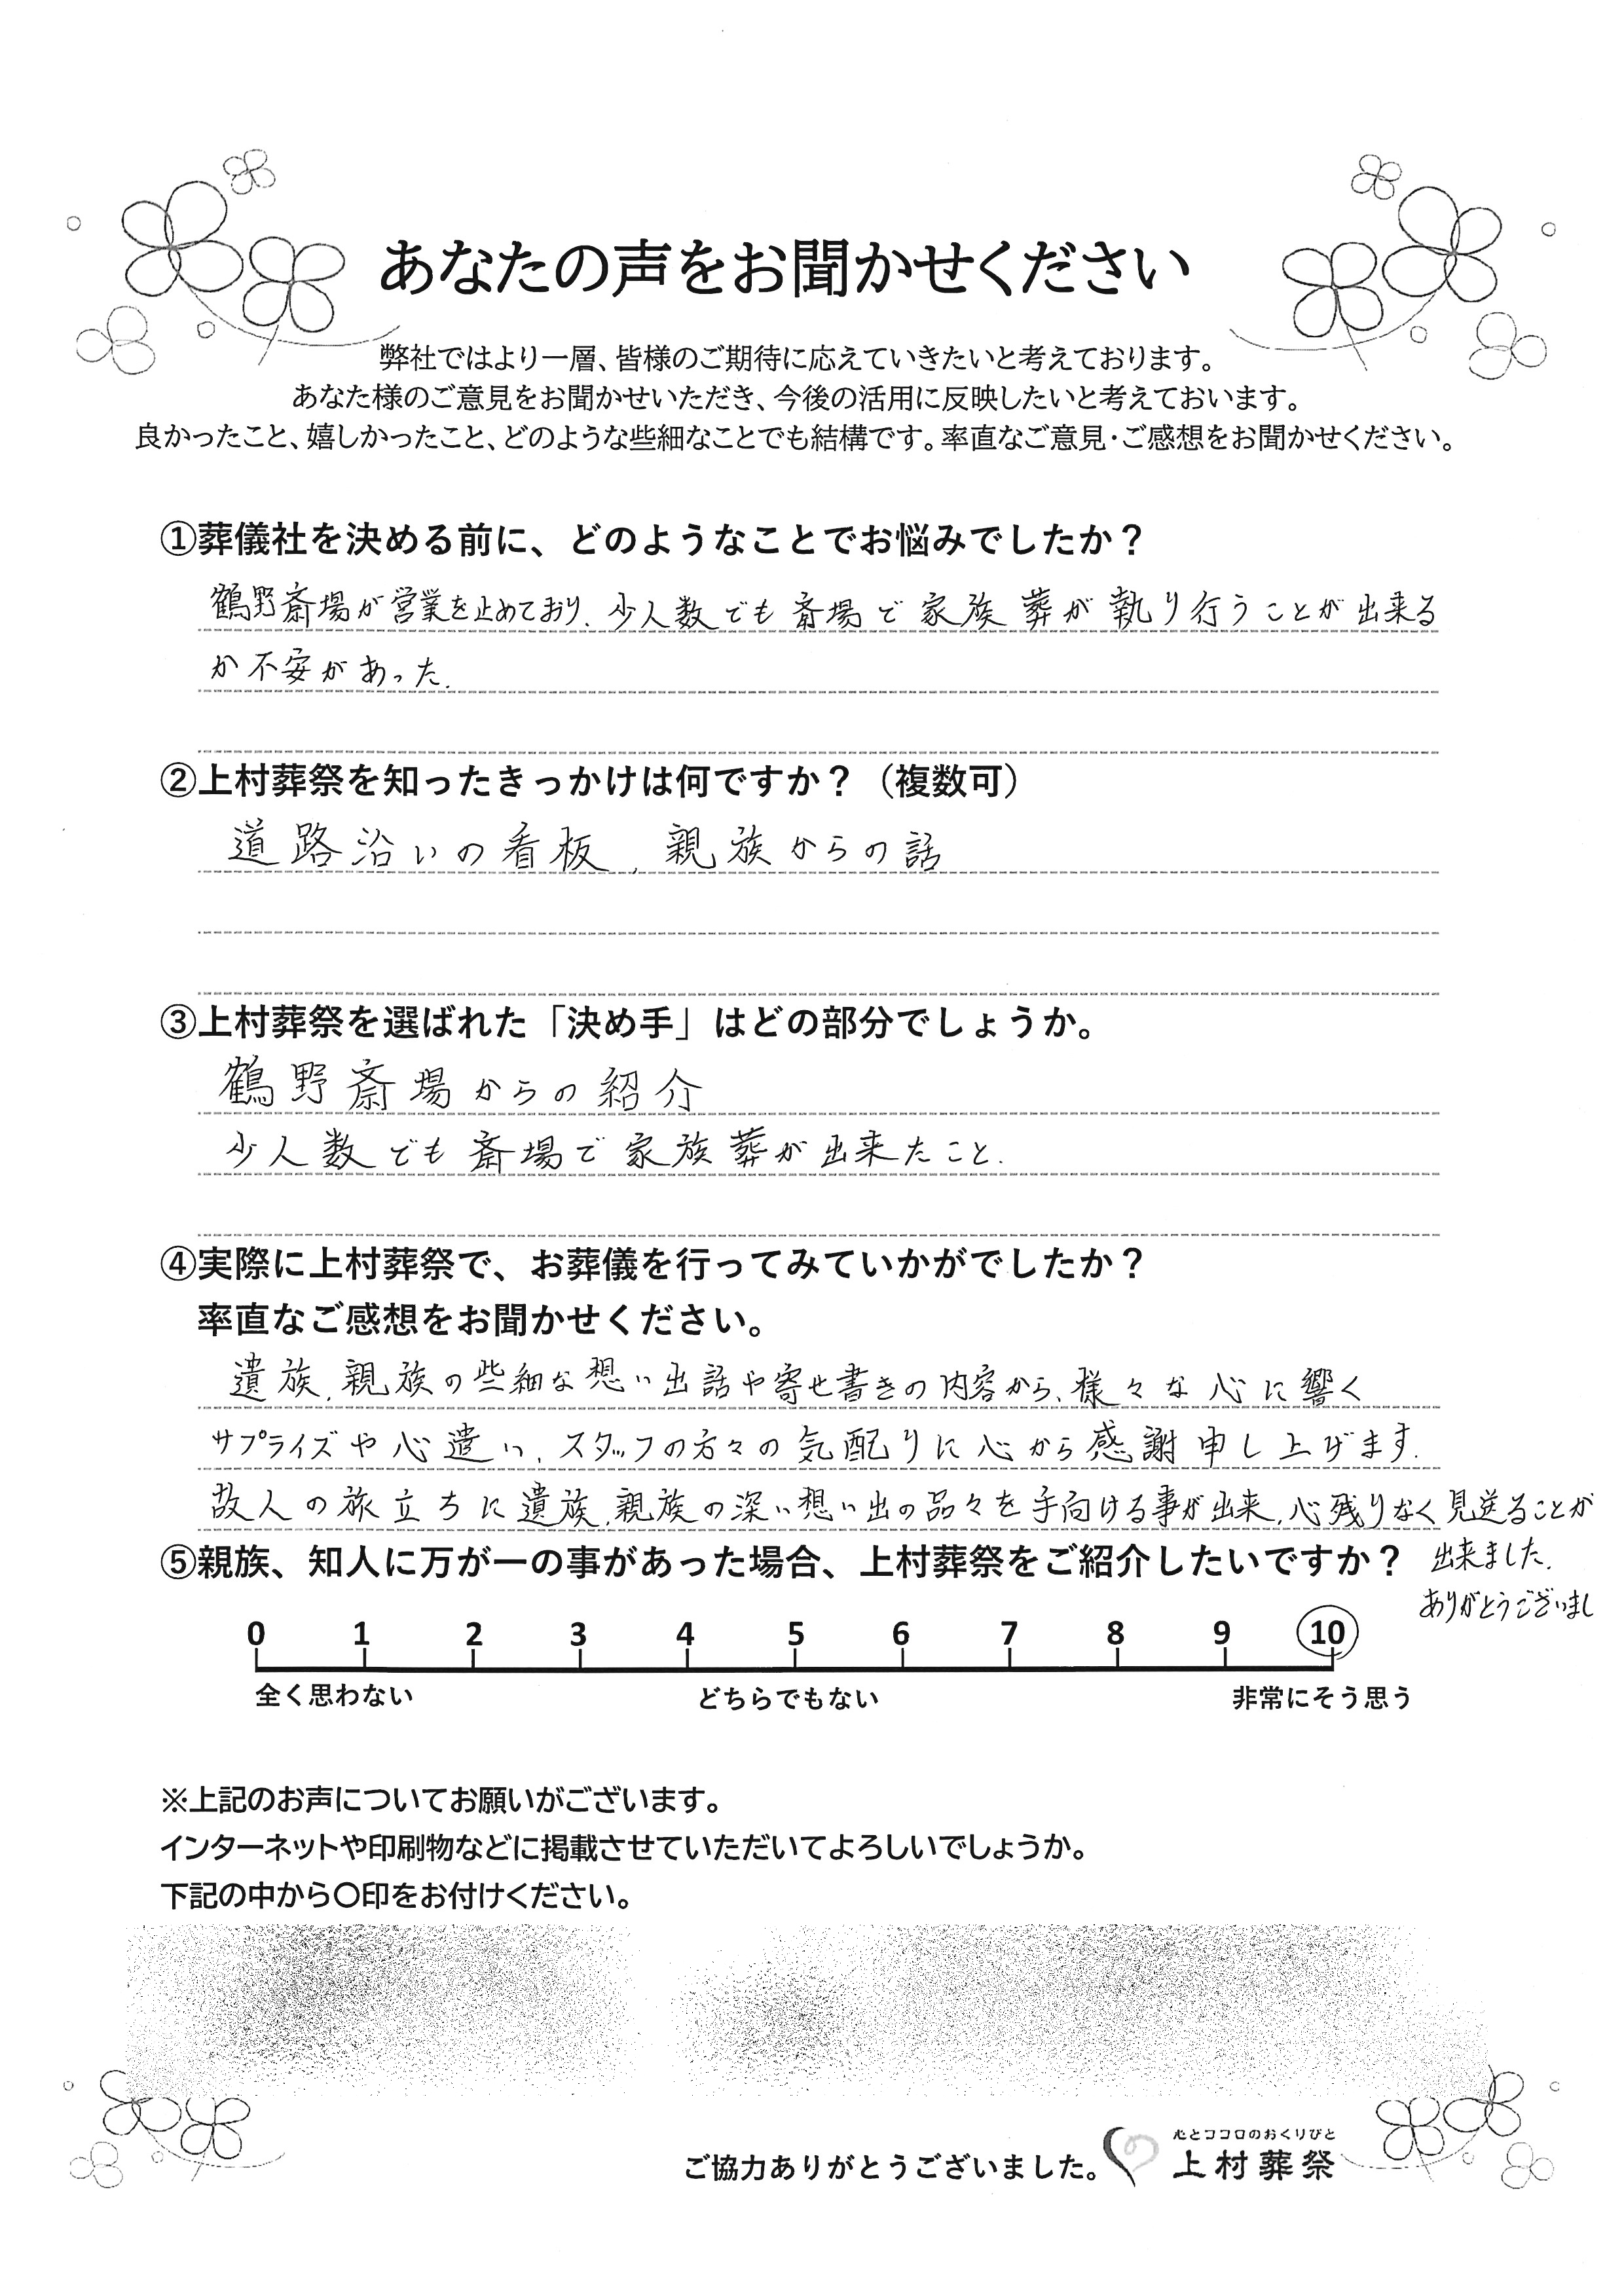 あなたの声をお聞かせください
弊社ではより一層、皆様のご期待に応えていきたいと考えております。
あなた様のご意見をお聞かせいただき、今後の活用に反映したいと考えておいます。
良かったこと、嬉しかったこと、どのような些細なことでも結構です。率直なご意見・ご感想をお聞かせください。
①葬儀社を決める前に、どのようなことでお悩みでしたか？
鶴野斎場が営業を止めており、少人数でも斎場で家族葬が執り行うことが出来る
か不安があった.
②上村葬祭を知ったきっかけは何ですか？（複数可）
道路沿いの看板、親族からの話
③上村葬祭を選ばれた「決め手」はどの部分でしょうか。
鶴野斎場からの紹介
少人数でも斎場で家族葬が出来たこと.
④実際に上村葬祭で、お葬儀を行ってみていかがでしたか？
率直なご感想をお聞かせください。
遺族、親族の些細な想い出話や寄せ書きの内容から、様々な心に響く
サプライズや心遣い、スタッフの方々の気配りに心から感謝申し上げます.
故人の旅立ちに遺族、親族の深い想い出の品々を手向ける事が出来、心残りなく見送ることが
出来ました.
ありがとうございまし
⑤親族、知人に万が一の事があった場合、上村葬祭をご紹介したいですか？
0 1 2 3 4 5 6 7 8 9 10
全く思わない どちらでもない 非常にそう思う
※上記のお声についてお願いがございます。
インターネットや印刷物などに掲載させていただいてよろしいでしょうか。
下記の中から〇印をお付けください。
ご協力ありがとうございました。
心とココロのおくりびと
上村葬祭